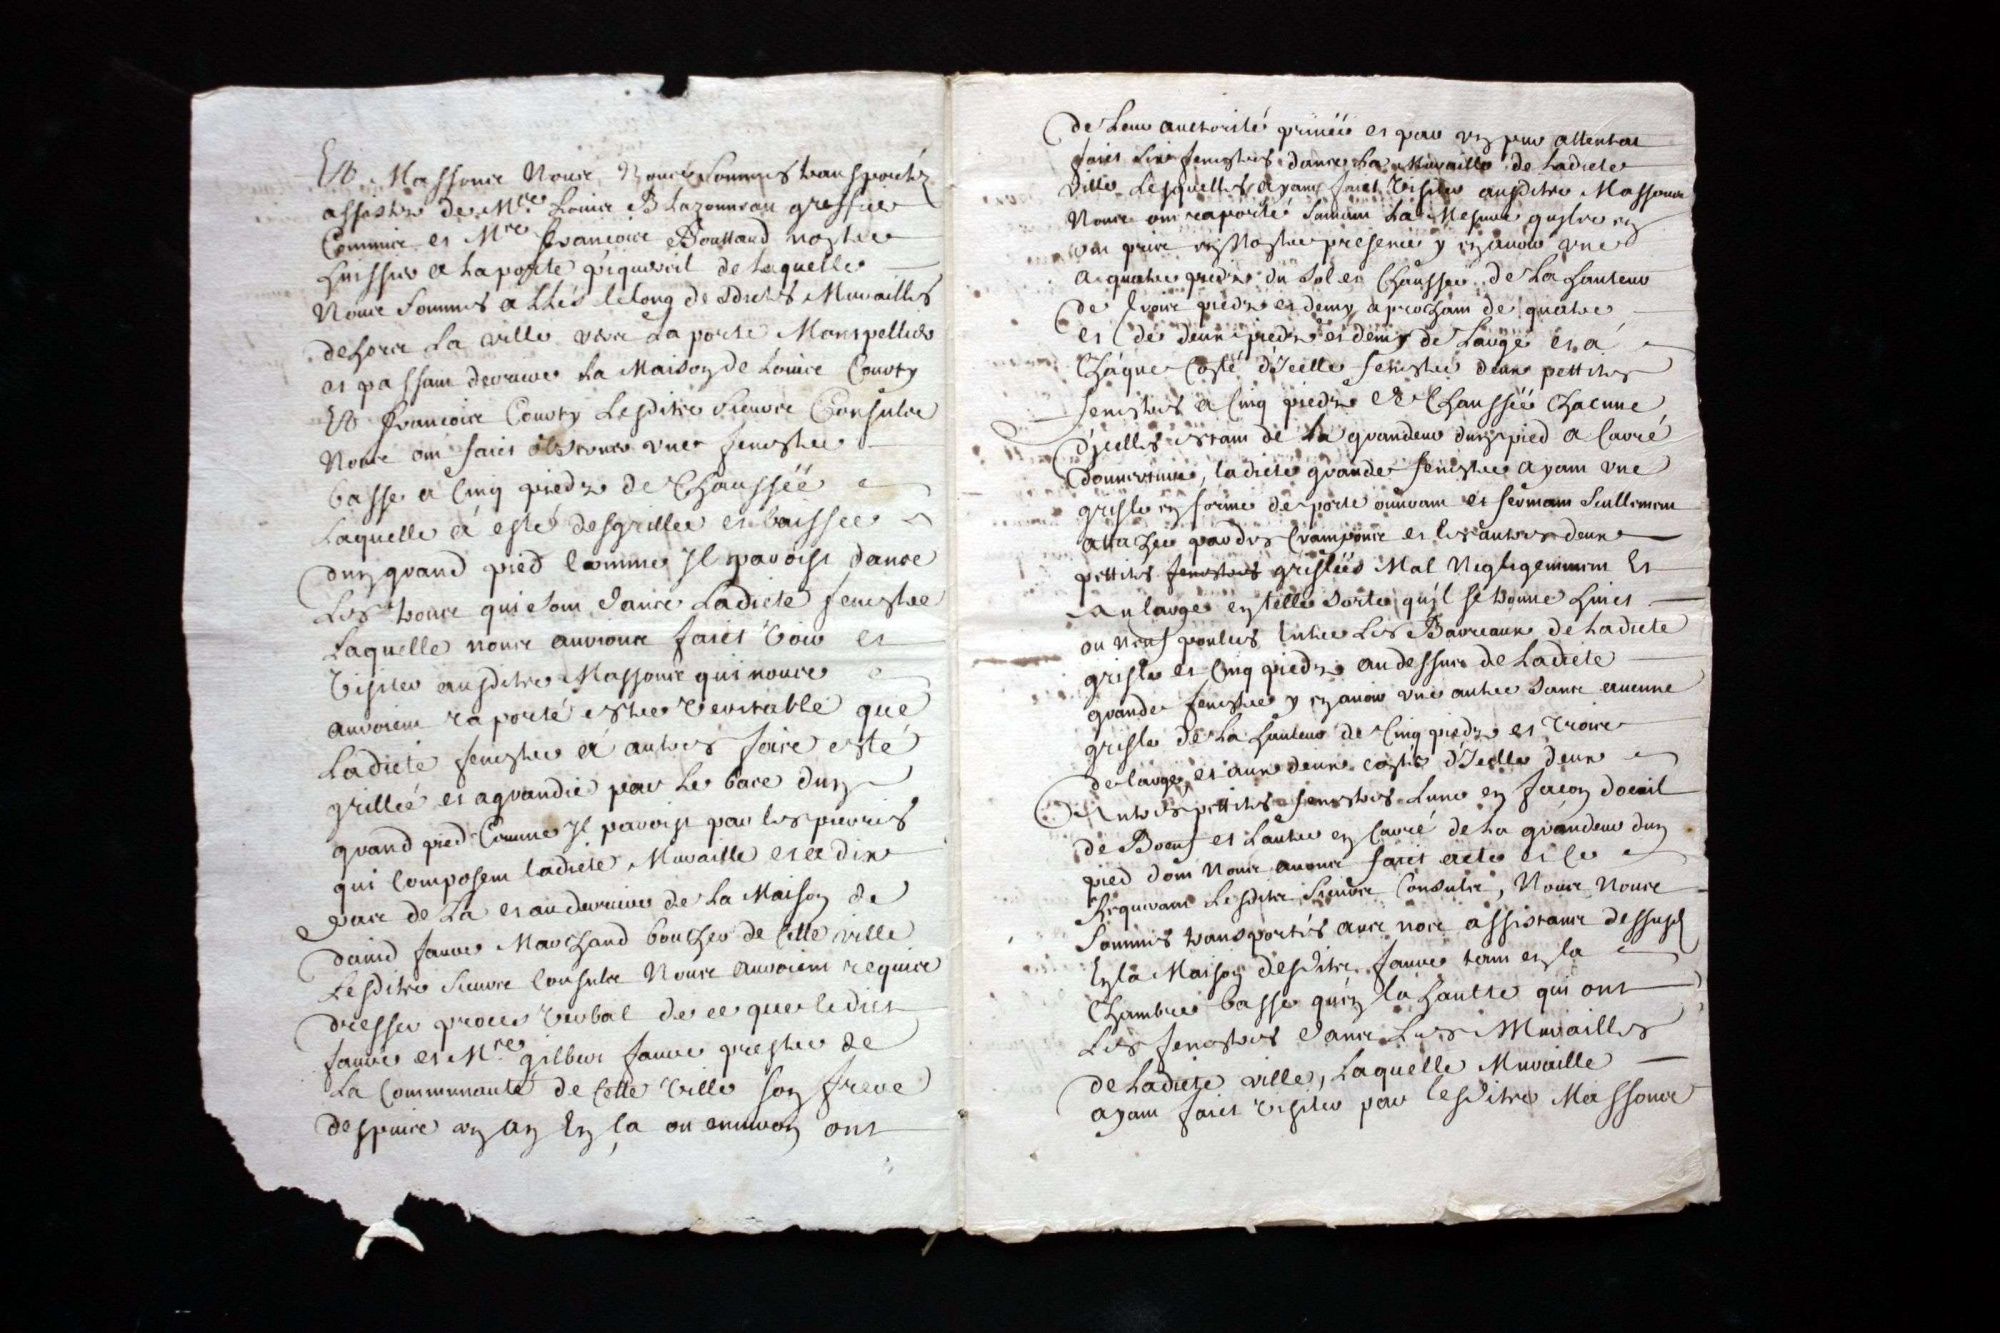 Et Massons Nous, Nous sommes transportés
assistés de Mre Louis Blazonneau greffier
Commis et Mre francois Bouttaud nostre
huissier a la porte piquereil de laquelle
Nous sommes allés le long desdictes Murailles
dehors la ville vers la porte Monspellier
et passant derriere la Maison de Louis Couvty
Et francois Couvty lesdits sieurs Consuls
Nous ont faict observer une fenestre
basse a cinq pieds de Chaussée
laquelle a esté desgrillee et baissee
dun grand pied comme Il paroist dans
les trous qui sont dans ladicte fenestre
laquelle nous aurions faict voir et
visiter ausdits Massons qui nous
auroient raporté estre veritable que
ladicte fenestre a autres fois esté
grillée et agrandie par le bace dun
grand pied Comme Il paroist par les pierres
qui composent ladicte Muraille et a dix
pacs de la et au derriere de la Maison de
david faure Marchand boucher de Cette ville
lesdits sieurs Consuls Nous auroient requis
dresser proces verbal de ce que ledict
faure et Mre gilbert faure prestre de
la Communauté de Cette ville son frere
despuis un an En ça ou environ ont
de leur authorité privée et par un pur attentat
faict six fenestres dans la Muraille de ladicte
ville lesquelles ayant faict visiter ausdits Massons
Nous ont raporté suivant la Mesure quilz en
ont prise en Nostre presence y en avoir une
a quatre pieds du sol et Chaussée de la hauteur
de trois pieds et demy aprochant de quatre
et de deux pieds et demy de large et a
Chaque Costé d'Icelle fenestre deux pettites
fenestres a Cinq pieds de Chaussée chacune
d'Icelles estant de la grandeur dun pied a Carré
douverture, ladicte grande fenestre ayant une
grisle en forme de porte ouvrant et fermant seullement
attachée par des Crampons et les autres deux
pettites fenestres grislées Mal Negligemment Et
Au large en telle sorte quil se trouve huict
ou neuf poulces Entre les Barreaux de ladicte
grisle et Cinq pieds au dessus de ladicte
grande fenestre y en avoir une autre sans aucune
grisle de la hauteur de Cinq pieds et trois
de large, et aux deux costés d'Icelle deux
Autres pettites fenestres lune en facon doeuil
de Boeuf et lautre en Carré de la grandeur dun
pied dont Nous avons faict acte et Ce
Requerant lesdits sieurs Consuls, Nous Nous
sommes transportés avec nos assistans dessusd
En la Maison desdits faure tant en la
Chambre basse quen la haulte qui ont
les fenestres dans les Murailles
de ladicte ville, laquelle Muraille
ayant faict visiter par lesdits Massons